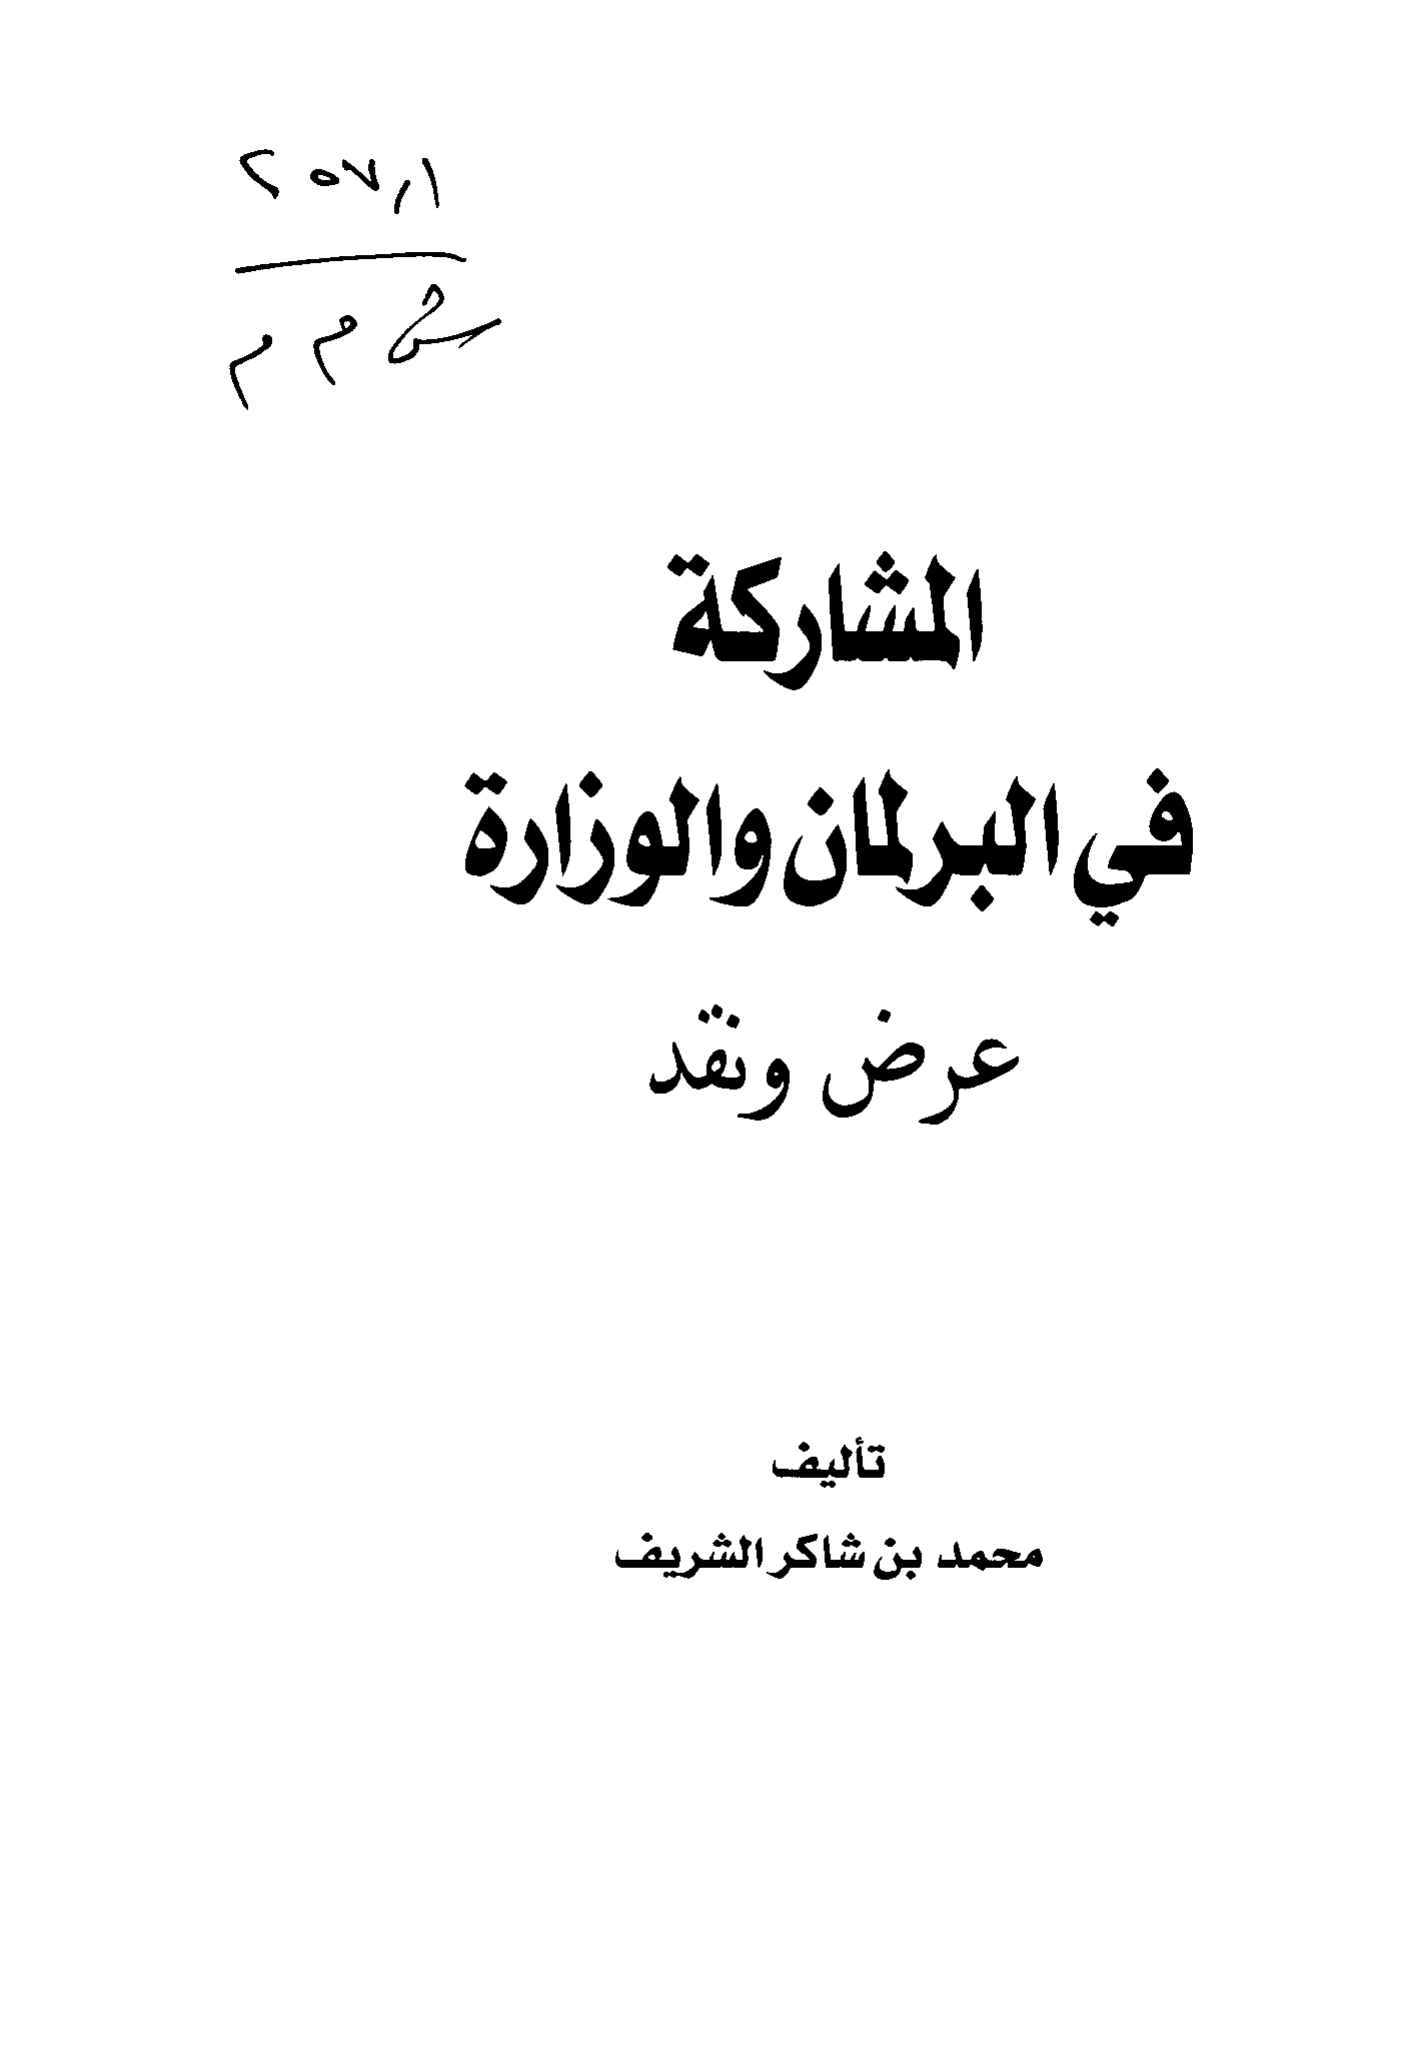 ٢٥٧,١
ش م م
المشاركة
في البرلمان والوزارة
عرض ونقد
تأليف
محمد بن شاكر الشريف